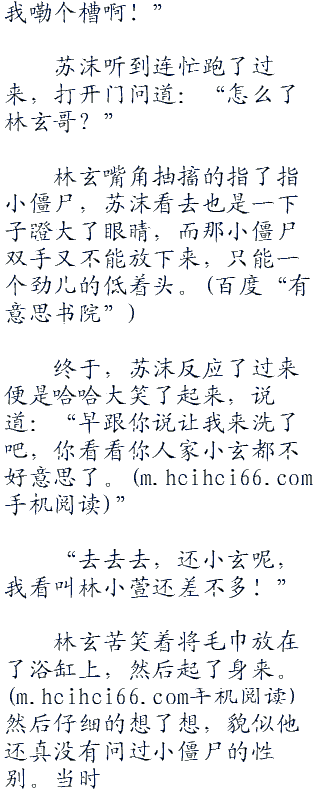 我嘞个槽啊！”
苏沫听到连忙跑了过
来，打开门问道：“怎么了
林玄哥？”
林玄嘴角抽搐的指了指
小僵尸，苏沫看去也是一下
子瞪大了眼睛，而那小僵尸
双手又不能放下来，只能一
个劲儿的低着头。(百度“有
意思书院”)
终于，苏沫反应了过来
便是哈哈大笑了起来，说
道：“早跟你说让我来洗了
吧，你看看你人家小玄都不
好意思了。(m.hcihci66.com
手机阅读)”
“去去去，还小玄呢，
我看叫林小萱还差不多！”
林玄苦笑着将毛巾放在
了浴缸上，然后起了身来。
(m.hcihci66.com手机阅读)
然后仔细的想了想，貌似他
还真没有问过小僵尸的性
别。当时